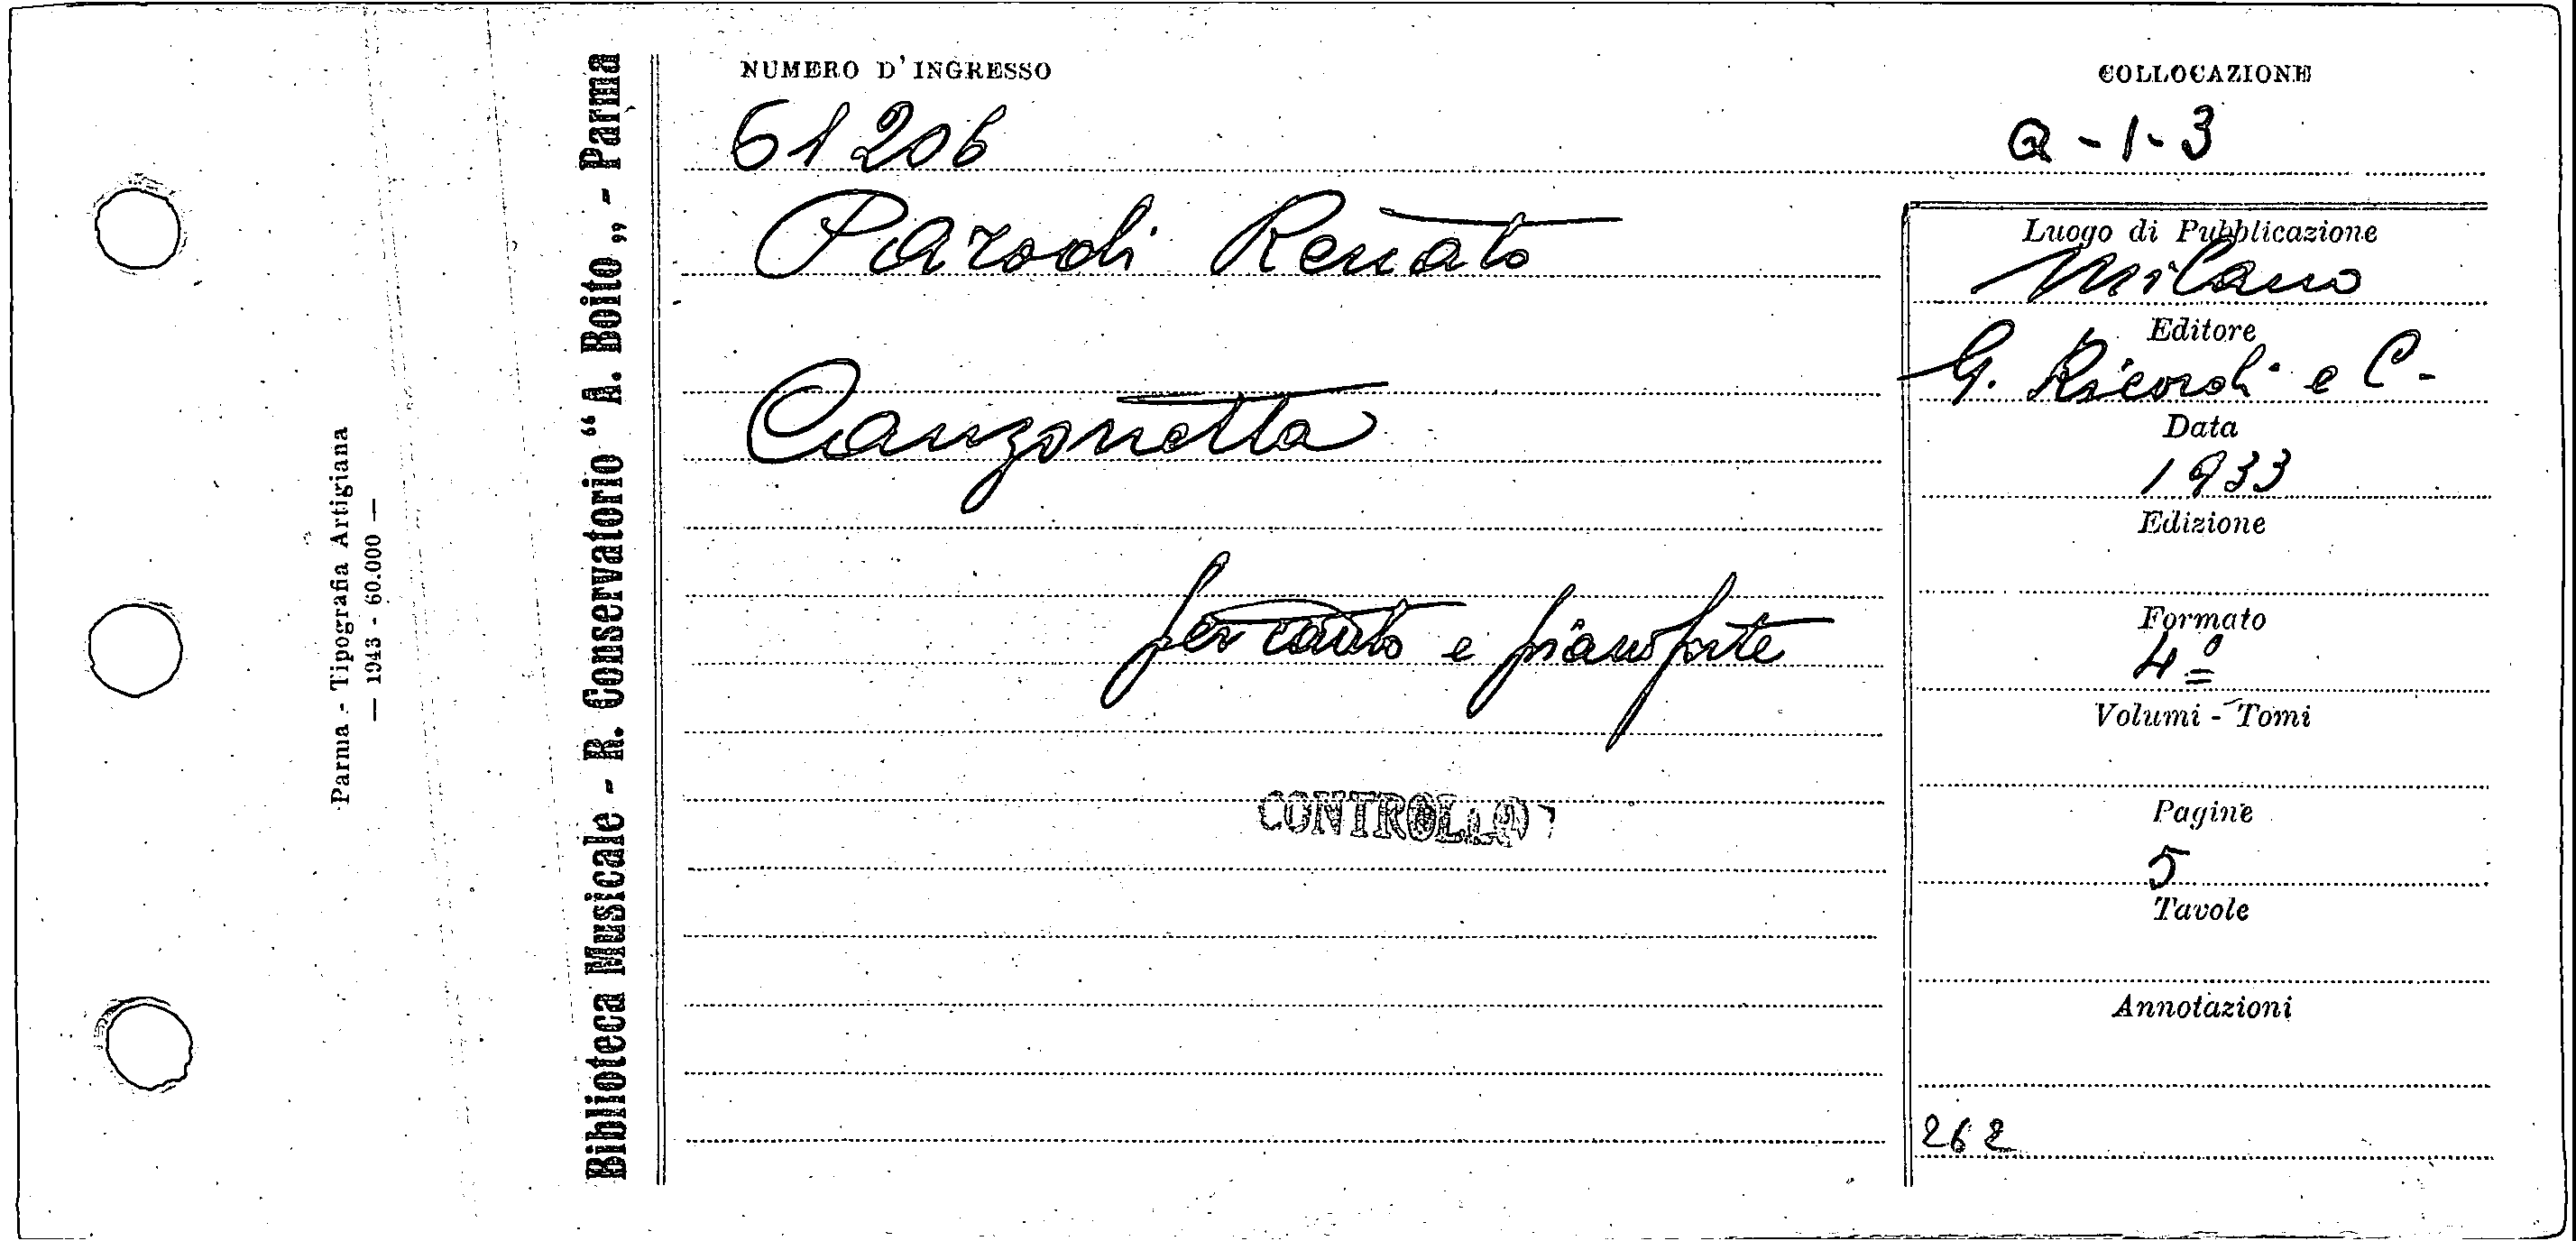 Parma - Tipografia Artigiana
— 1943 - 60.000 —
Biblioteca Musicale - R. Conservatorio “A. Boito„ - Parma
NUMERO D'INGRESSO
61206
COLLOCAZIONE
Q-1-3
Parodi Renato
Canzonetta
per canto e pianoforte
CONTROLLO
Luogo di Pubblicazione
Milano
Editore
G. Ricordi e C.
Data
1933
Edizione
Formato
4º
Volumi - Tomi
Pagine
5
Tavole
Annotazioni
262